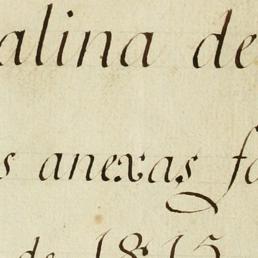 alina de
s anexas fa
de 1815